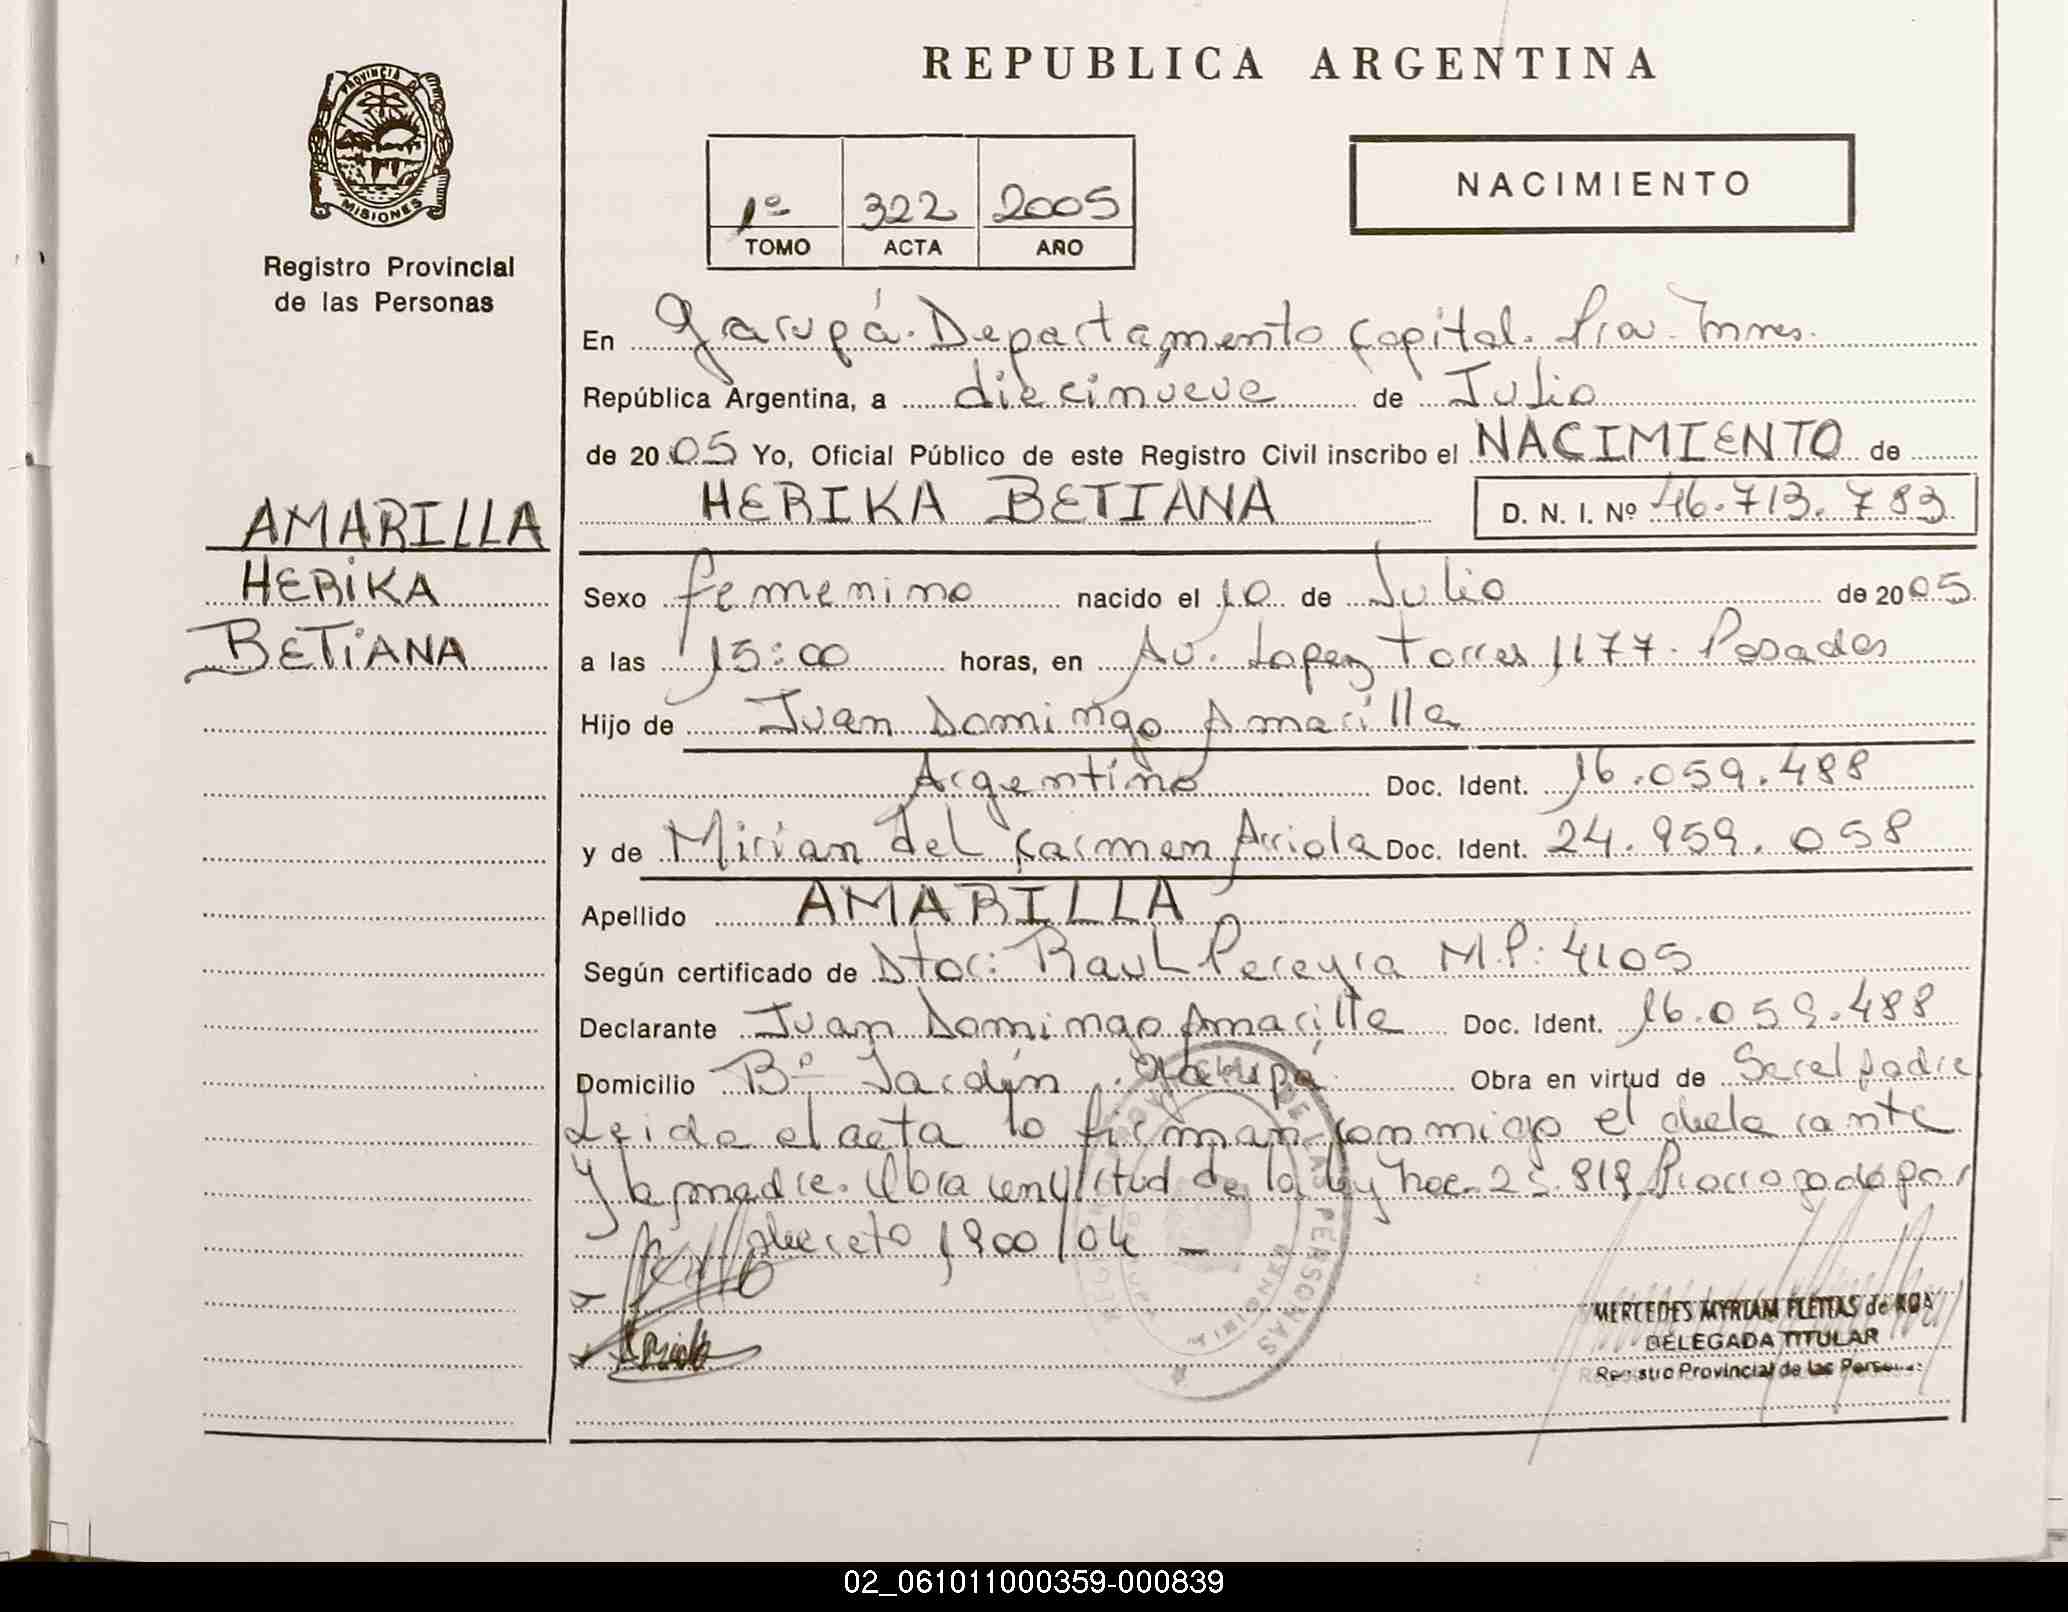 REPUBLICA ARGENTINA
PROVINCIA DE
MISIONES
Registro Provincial
de las Personas
1º 322 2005
TOMO ACTA AÑO
NACIMIENTO
En Garupá. Departamento Capital. Prov. Mnes.
República Argentina, a diecinueve de Julio
de 2005 Yo, Oficial Público de este Registro Civil inscribo el NACIMIENTO de
HERIKA BETIANA D. N. I. Nº 46.713.783
AMARILLA
HERIKA
BETIANA
Sexo femenino nacido el 10 de Julio de 2005
a las 15:00 horas, en Av. Lopez Torres 1177. Posadas
Hijo de Juan Domingo Amarilla
Argentino Doc. Ident. 16.059.488
y de Mirian Del Carmen Arriola Doc. Ident. 24.959.058
Apellido AMARILLA
Según certificado de Dtor: Raul Pereyra M.P: 4105
Declarante Juan Domingo Amarilla Doc. Ident. 16.059.488
Domicilio Bº Jardín. Garupá Obra en virtud de Ser el padre
Leida el acta lo firman conmigo el declarante
y la madre. Obra en virtud de la ley Nac. 25.819 Prorrogado por
decreto 1900/04
DE LAS PERSONAS
MERCEDES MYRIAM FLEITAS de ROA
DELEGADA TITULAR
Registro Provincial de las Personas
02_061011000359-000839